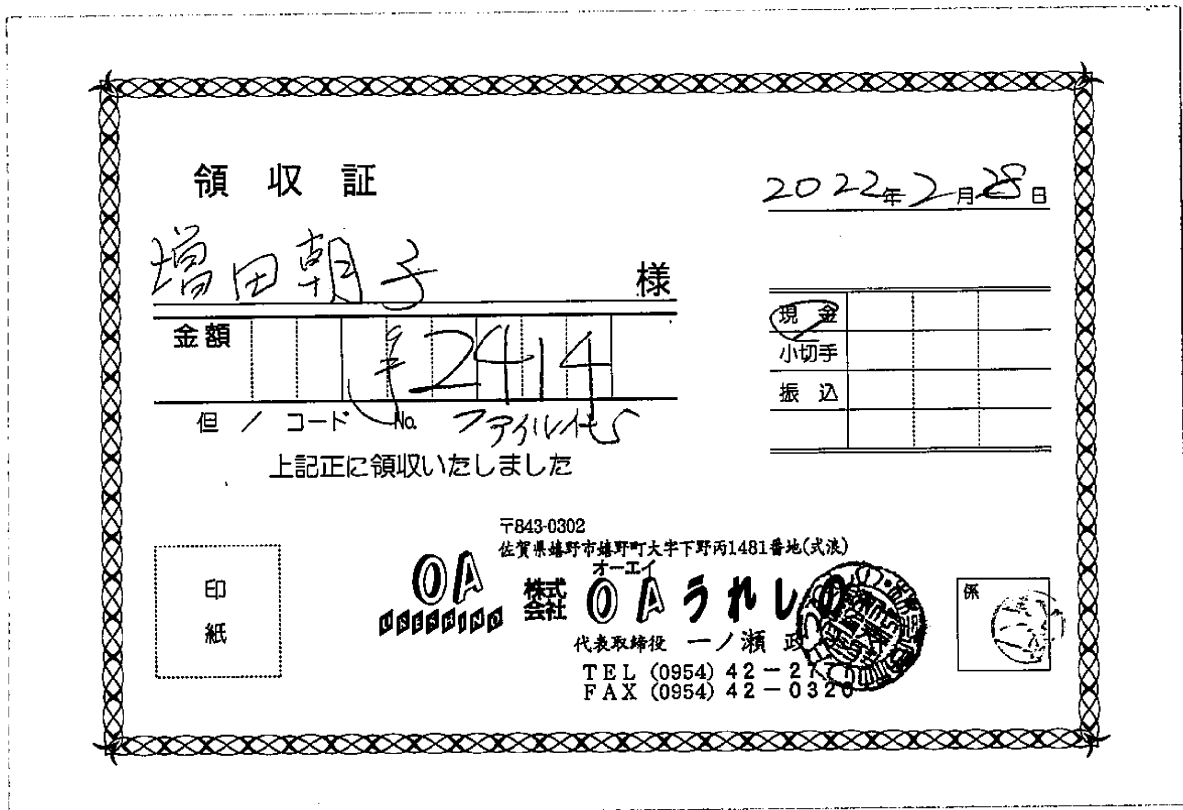 領収証
2022年2月28日
増田朝子 様
金額 ¥2414
現金
小切手
振込
但 / コード No. ファイル代
上記正に領収いたしました
〒843-0302
佐賀県嬉野市嬉野町大字下野丙1481番地(式浪)
印紙
OA
URESHINO
オーエイ
株式会社 OAうれしの
代表取締役 一ノ瀬 政
TEL (0954) 42-27
FAX (0954) 42-0320
係